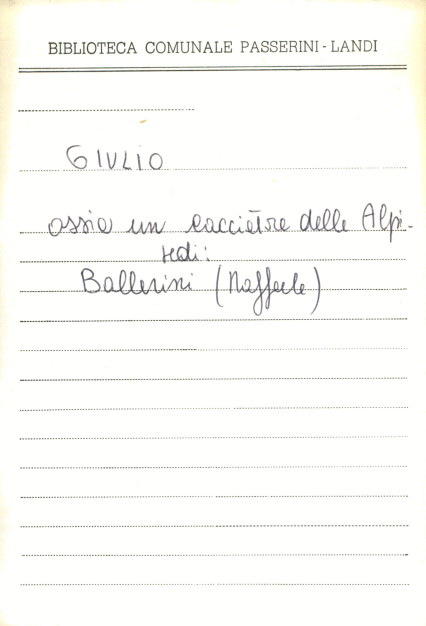 BIBLIOTECA COMUNALE PASSERINI - LANDI
GIULIO
ossia un cacciatore delle Alpi.
vedi:
Ballerini (Raffaele)